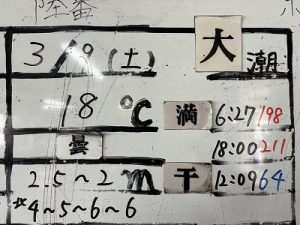 陸番
3/9 (土) 大潮
18℃ 満 6:27 198
曇 18:00 211
2.5~2m 干 12:09 64
北4~5~6~6